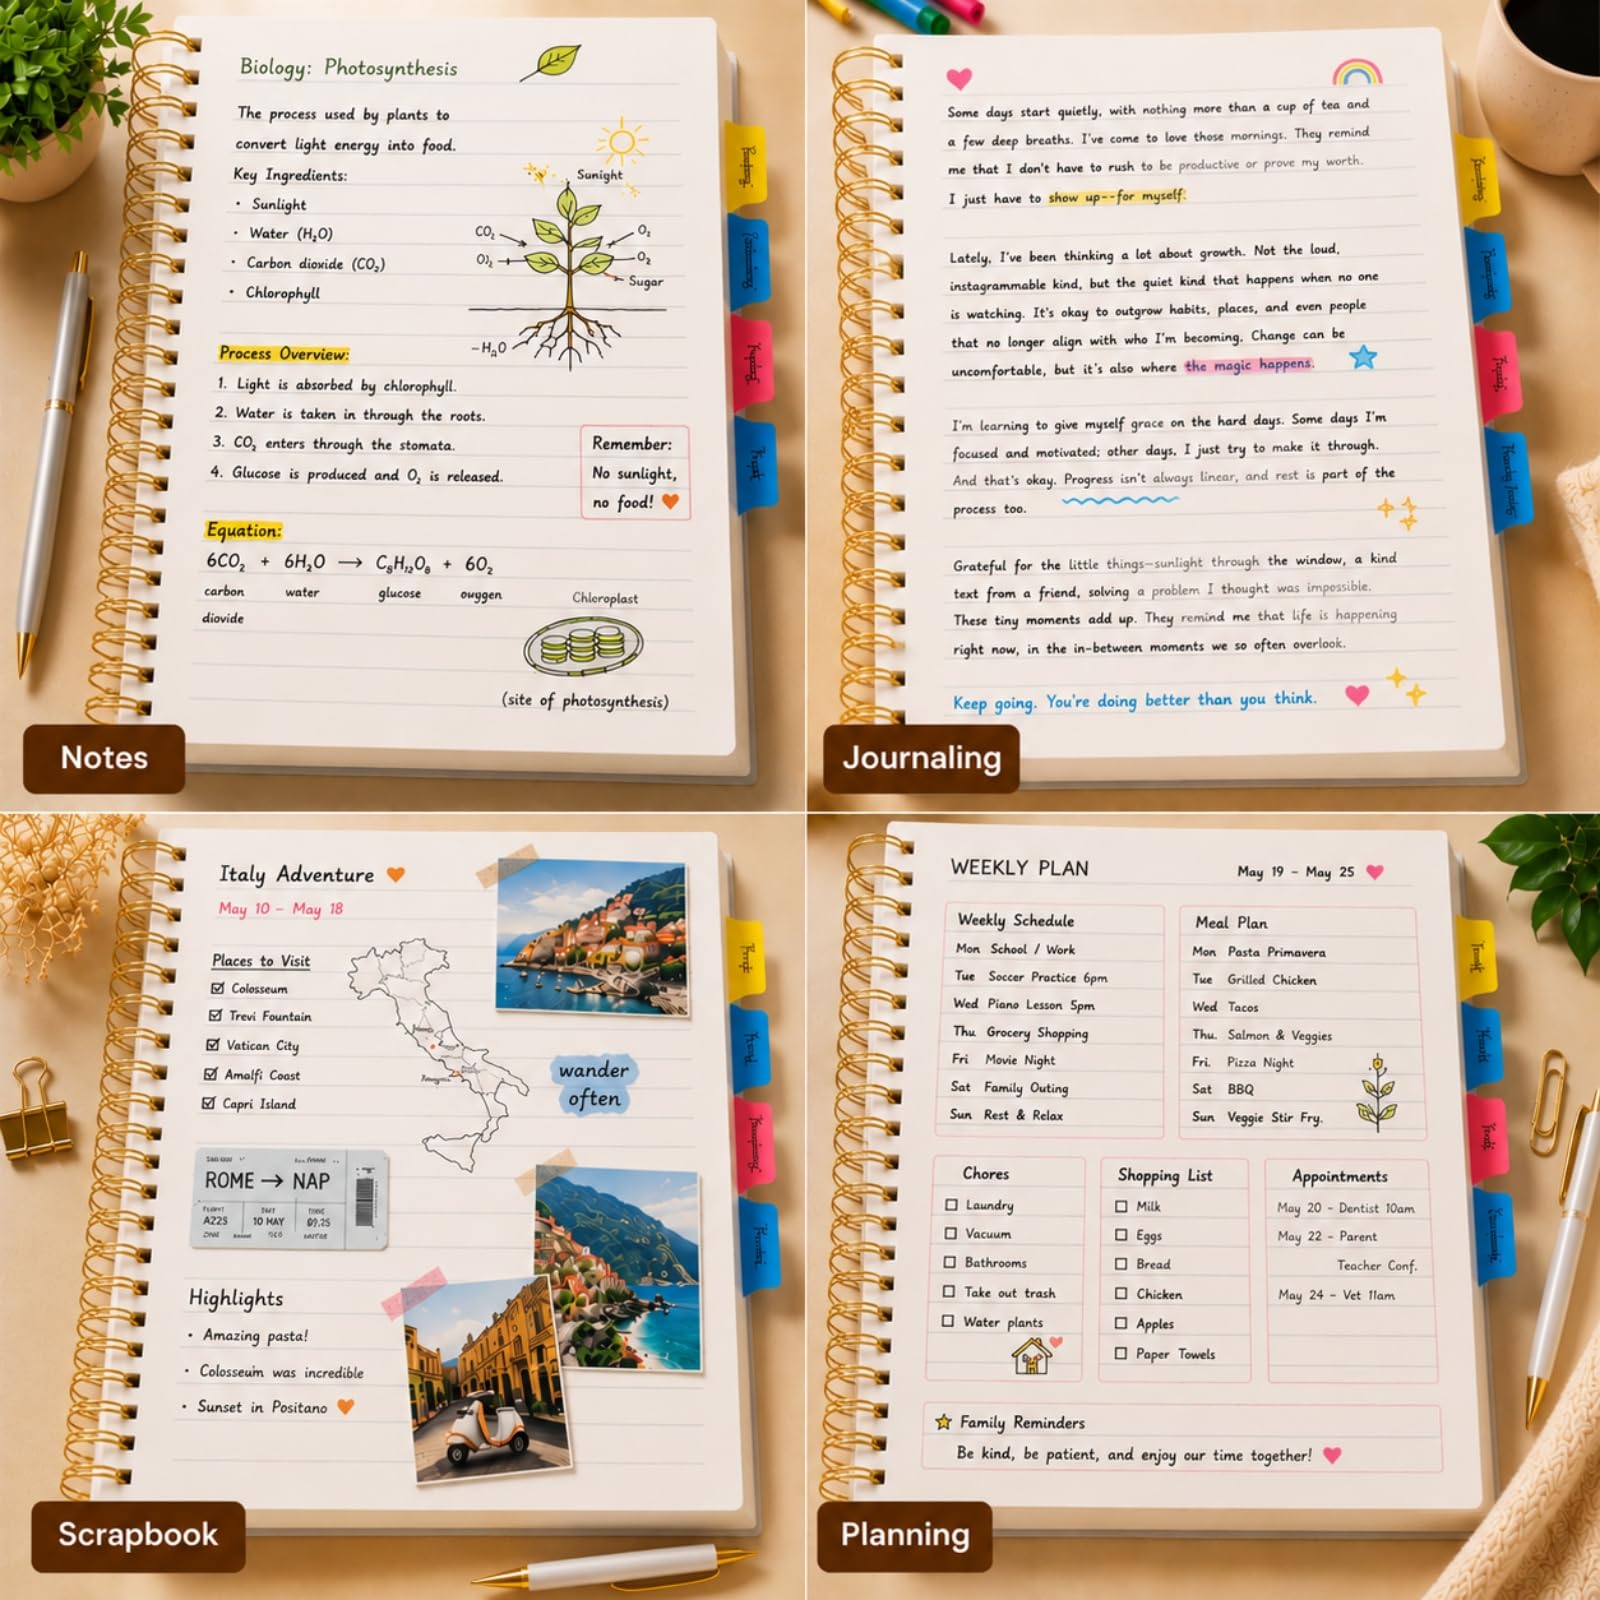 Biology: Photosynthesis
The process used by plants to
convert light energy into food.
Key Ingredients:
• Sunlight
• Water (H₂O)
• Carbon dioxide (CO₂)
• Chlorophyll
Sunight
CO₂
O₂
O₂
Sugar
-H₂O
Process Overview:
1. Light is absorbed by chlorophyll.
2. Water is taken in through the roots.
3. CO₂ enters through the stomata.
4. Glucose is produced and O₂ is released.
Remember:
No sunlight,
no food!
Equation:
6CO₂ + 6H₂O → C₆H₁₂O₆ + 6O₂
carbon water glucose ouygen
diovide
Chleroplast
(site of photosynthesis)
Notes
Some days start quietly, with nothing more than a cup of tea and
a few deep breaths. I've come to love those mornings. They remind
me that I don't have to rush to be productive or prove my worth.
I just have to show up--for myself.
Lately, I've been thinking a lot about growth. Not the loud,
instagrammable kind, but the quiet kind that happens when no one
is watching. It's okay to outgrow habits, places, and even people
that no longer align with who I'm becoming. Change can be
uncomfortable, but it's also where the magic happens.
I'm learning to give myself grace on the hard days. Some days I'm
focused and motivated; other days, I just try to make it through.
And that's okay. Progress isn't always linear, and rest is part of the
process too.
Grateful for the little things—sunlight through the window, a kind
text from a friend, solving a problem I thought was impossible.
These tiny moments add up. They remind me that life is happening
right now, in the in-between moments we so often overlook.
Keep going. You're doing better than you think.
Journaling
Italy Adventure
May 10 - May 18
Places to Visit
Colosseum
Trevi Fountain
Vatican City
Amalfi Coast
Capri Island
wander
often
ROME → NAP
A22S 10 MAY 09.25
Highlights
• Amazing pasta!
• Colosseum was incredible
• Sunset in Positano
Scrapbook
WEEKLY PLAN
May 19 - May 25
Weekly Schedule
Mon School / Work
Tue Soccer Practice 6pm
Wed Piano Lesson 5pm
Thu. Grocery Shopping
Fri Movie Night
Sat Family Outing
Sun Rest & Relax
Meal Plan
Mon Pasta Primavera
Tue Grilled Chicken
Wed Tacos
Thu. Salmon & Veggies
Fri. Pizza Night
Sat BBQ
Sun Veggie Stir Fry.
Chores
Laundry
Vacuum
Bathrooms
Take out trash
Water plants
Shopping List
Milk
Eggs
Bread
Chicken
Apples
Paper Towels
Appointments
May 20 - Dentist 10am
May 22 - Parent
Teacher Conf.
May 24 - Vet 11am
Family Reminders
Be kind, be patient, and enjoy our time together!
Planning